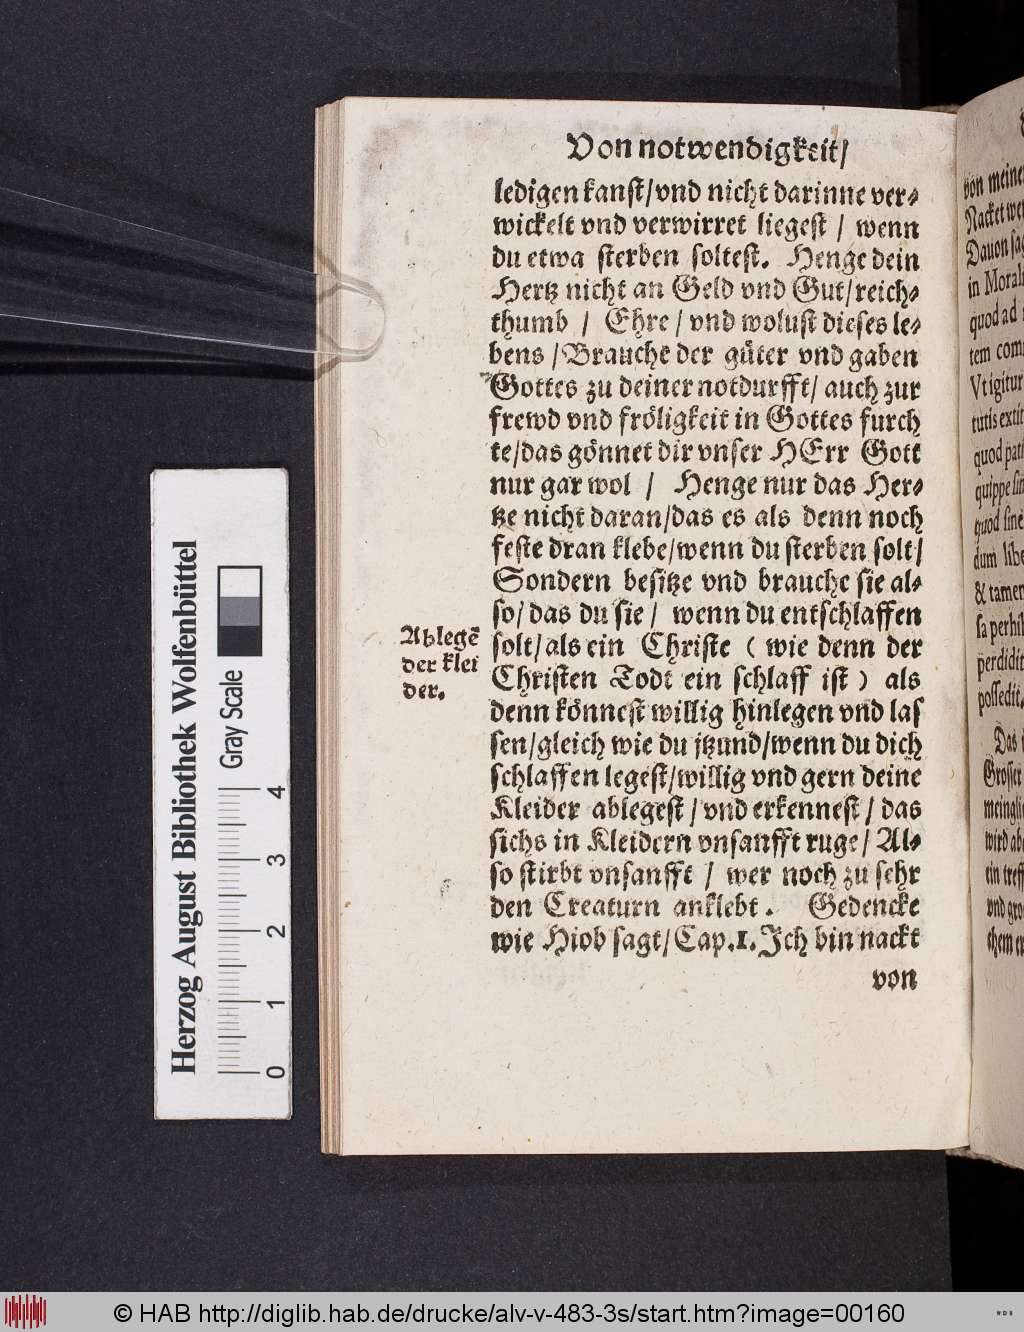 Von notwendigkeit/
ledigen kanst/vnd nicht darinne ver-
wickelt vnd verwirret liegest / wenn
du etwa sterben soltest. Henge dein
Hertz nicht an Geld vnd Gut/reich-
thumb / Ehre / vnd wolust dieses le-
bens /Brauche der gůter vnd gaben
Gottes zu deiner notdurfft/ auch zur
frewd vnd frőligkeit in Gottes furch
te/das gőnnet dir vnser HErr Gott
nur gar wol / Henge nur das Her-
tze nicht daran/das es als denn noch
feste dran klebe/wenn du sterben solt/
Sondern besitze vnd brauche sie al-
so/ das du sie / wenn du entschlaffen
solt/als ein Christe ( wie denn der
Christen Todt ein schlaff ist ) als
denn kőnnest willig hinlegen vnd las
sen/gleich wie du jtzund/wenn du dich
schlaffen legest/willig vnd gern deine
Kleider ablegest / vnd erkennest / das
sichs in Kleidern vnsanfft ruge/ Al-
so stirbt vnsanfft / wer noch zu sehr
den Creaturn anklebt. Gedencke
wie Hiob sagt/Cap.1.Ich bin nackt
von
Ablegẽ
der klei
der.
von meine
Nacket
Dauon
in Moral
quod ad
tem com
Vt igitur
tutis
quod
quippe
quod sine
dum
& tamen
sa
perdidit
possedit.
Das
Grosser
wird
vnd
Herzog August Bibliothek Wolfenbüttel
Gray Scale
0 1 2 3 4
© HAB http://diglib.hab.de/drucke/alv-v-483-3s/start.htm?image=00160